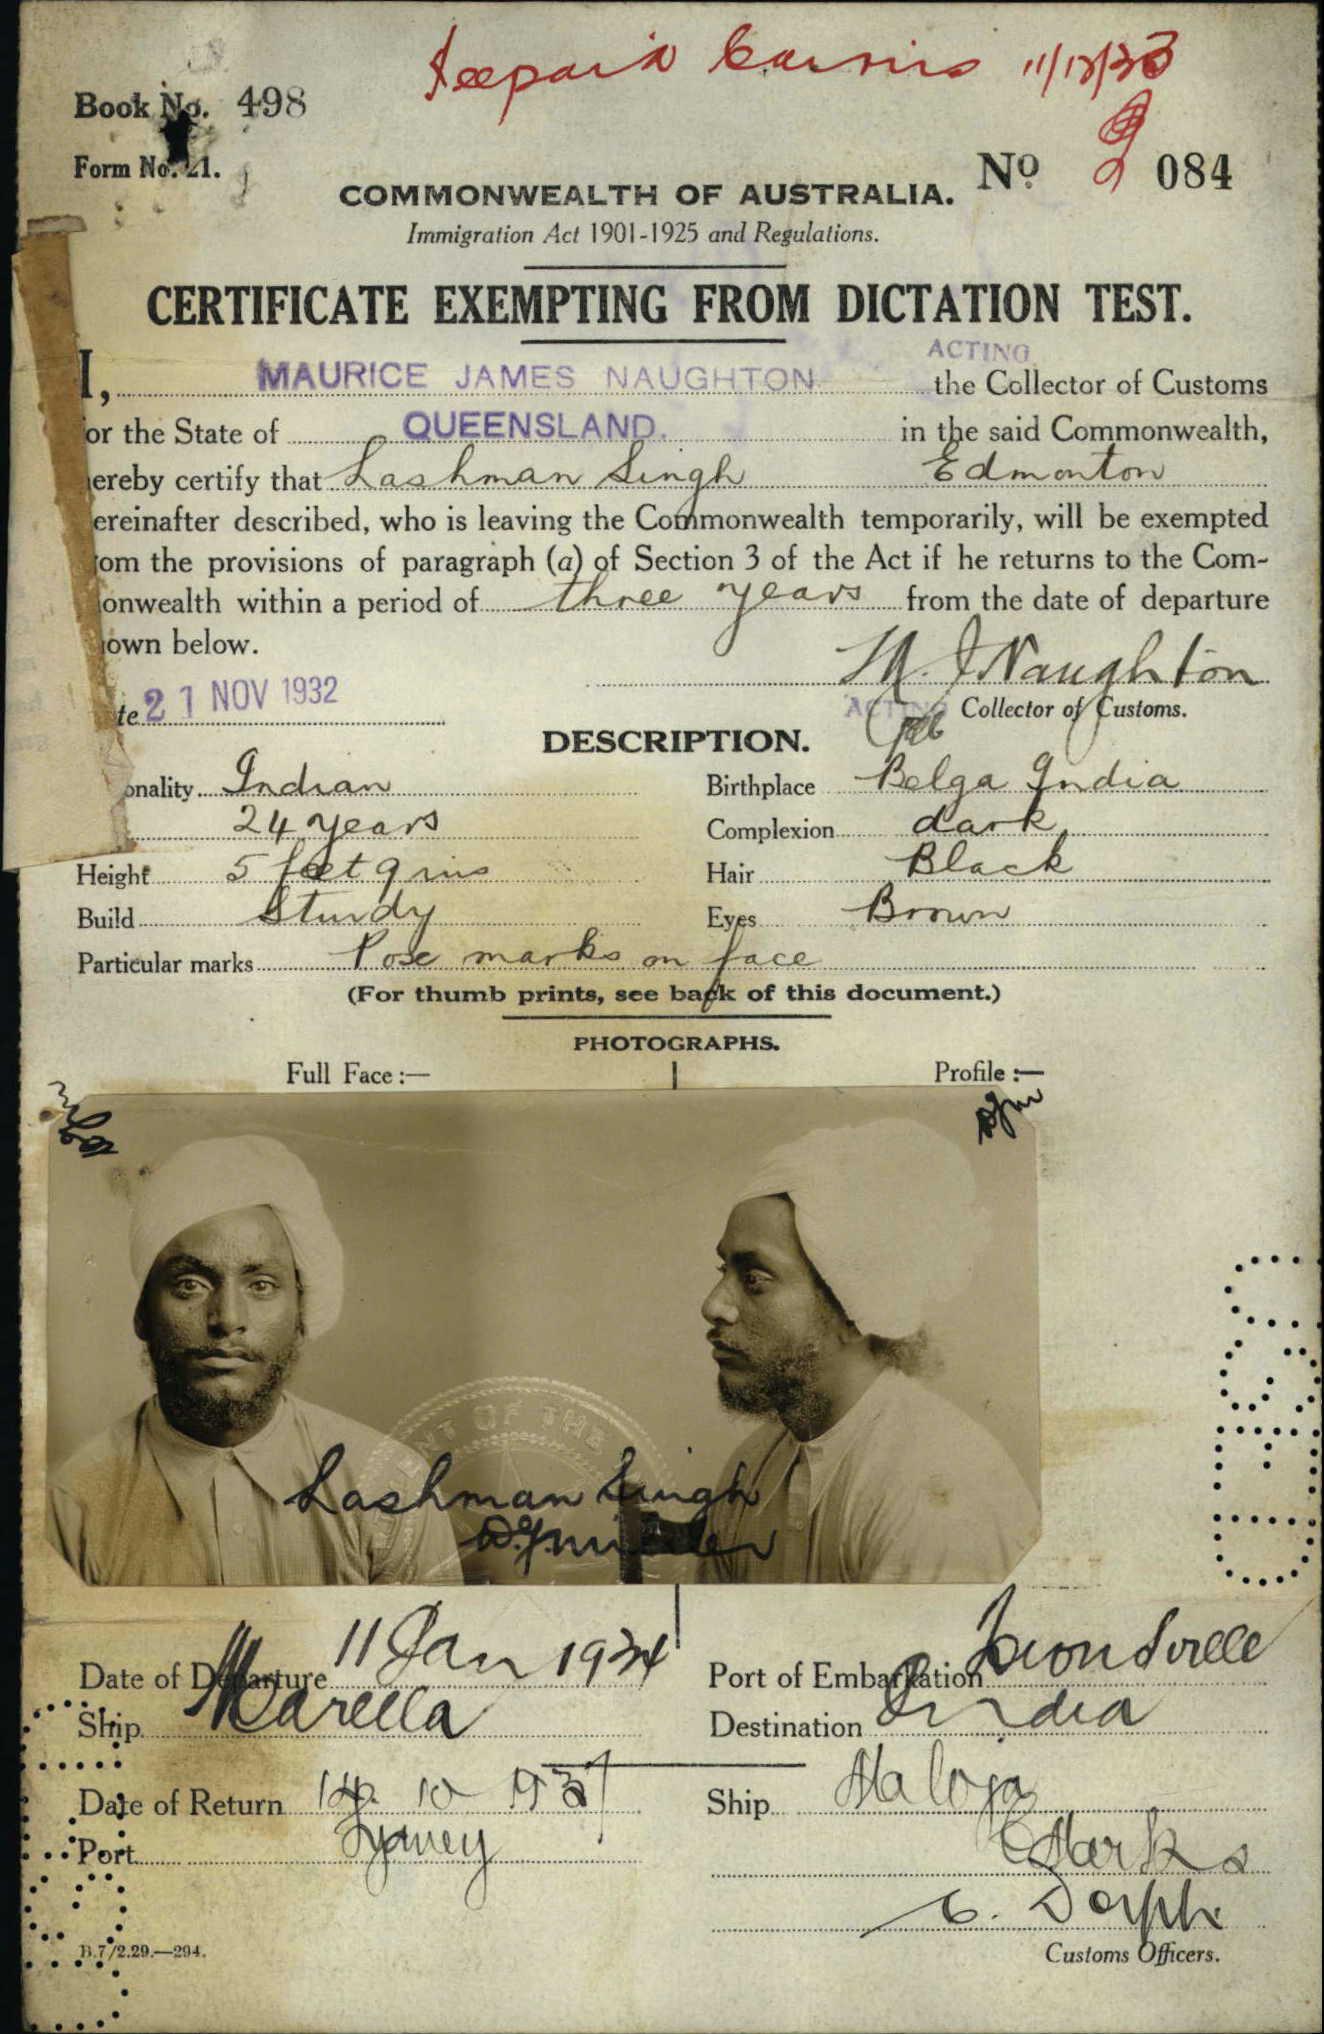 Cairns 11/12/33
Book No. 498
Form No. 21.
No 084
COMMONWEALTH OF AUSTRALIA.
Immigration Act 1901-1925 and Regulations.
CERTIFICATE EXEMPTING FROM DICTATION TEST.
ACTING
I, MAURICE JAMES NAUGHTON the Collector of Customs
or the State of QUEENSLAND. in the said Commonwealth,
ereby certify that Lashman Singh Edmonton
ereinafter described, who is leaving the Commonwealth temporarily, will be exempted
om the provisions of paragraph (a) of Section 3 of the Act if he returns to the Com-
onwealth within a period of three years from the date of departure
own below.
M. J Naughton
te 21 NOV 1932
ACTING Collector of Customs.
DESCRIPTION.
onality Indian Birthplace Belga India
24 years Complexion dark
Height 5 feet 9 ins Hair Black
Build Sturdy Eyes Brown
Particular marks Pox marks on face
(For thumb prints, see back of this document.)
PHOTOGRAPHS.
Full Face :— Profile :—
NT OF THE
Lashman Singh
Date of Departure 11 Jan 1934 Port of Embarkation
Ship Marella Destination India
Date of Return 14. 10 1937 Ship Maloja
Port Sydney
Customs Officers.
B.7/2.29.—294.